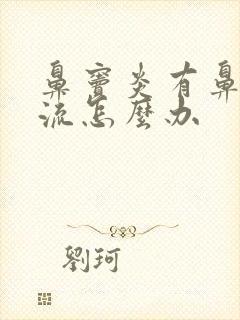 鼻竇炎有鼻
流怎麼办
劉珂